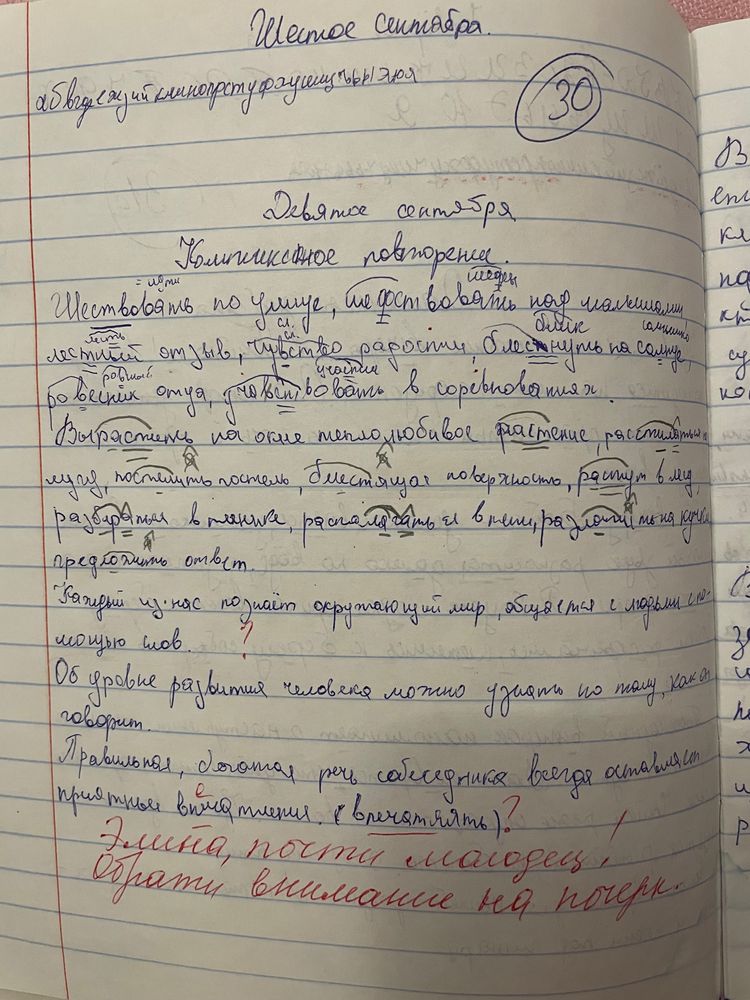 Шестое сентября.
абвгдежзийклмнопрстуфхцчшщъыьэюя
30
Девятое сентября
Комплексное повторение.
= идти шефы
Шествовать по улице, шефствовать над малышами
лесть сл. сл. блик солнышко
лестный отзыв, чувство радости, блеснуть на солнце,
ровный участие
ровесник отца, участвовать в соревнованиях.
Вырастить на окне теплолюбивое растение, расстилаться по
лугу, постелить постель, блестящая поверхность, растут в лед,
разбираться в технике, располагать в тени, разложить на кучки
предложить ответ.
Каждый из нас познаёт окружающий мир, общается с людьми с по-
мощью слов. ?
Об уровне развития человека можно узнать по тому, как он
говорит.
Правильная, богатая речь собеседника всегда оставляет
приятные впечатления. (впечатлять)?
Элина, почти молодец!
Обрати внимание на почерк.